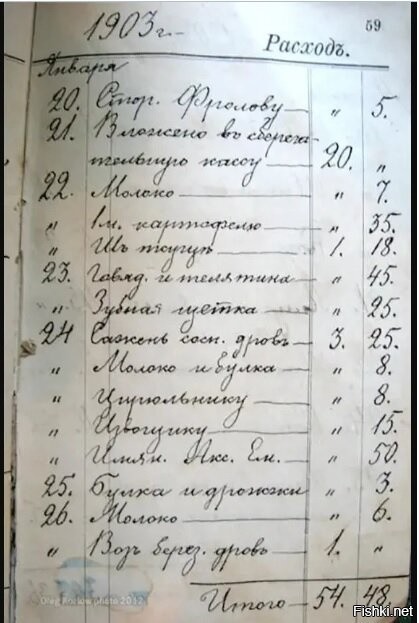 59
1903 г. Расходъ.
Января
20. Стор. Фролову — " 5.
21. Вложено въ сберега-
тельную кассу — 20. "
22. Молоко — " 7.
" 1 м. картофелю — " 35.
" 1. 18.
23. Говяд. и телятина — " 45.
" Зубная щетка — " 25.
24 Сажень сосн. дровъ — 3. 25.
" Молоко и булка — " 8.
" Цирюльнику — " 8.
" Извощику — " 15.
" Имян. Акс. Ем. — " 50.
25. Булка и дрожжи " 3.
26. Молоко — " 6.
" Возъ берез. дровъ — 1. "
Итого — 54. 48.
Oleg Kozlow photo 2012
Fishki.net